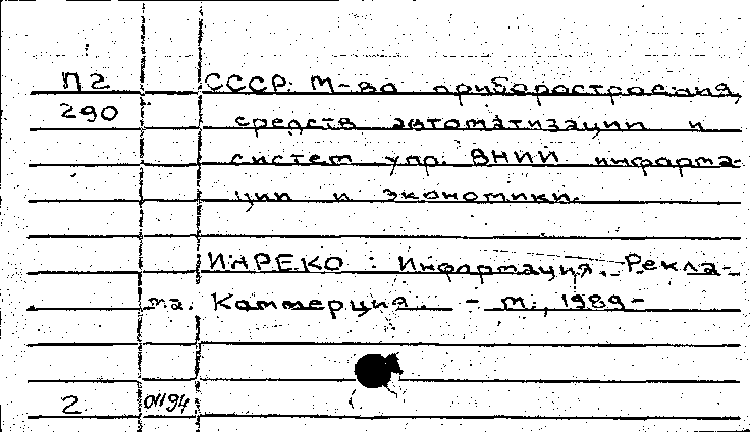 П2 СССР. М-во приборостроения,
290 средств автоматизации и
систем упр. ВНИИ информа-
ции и экономики.
ИНРЕКО : Информация. Рекла-
ма. Коммерция. - М., 1989-
2